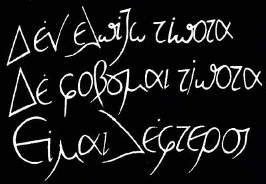 Δέν ελπίζω τίποτα
Δέ φοβουμαι τίποτα
Είμαι λέφτερος